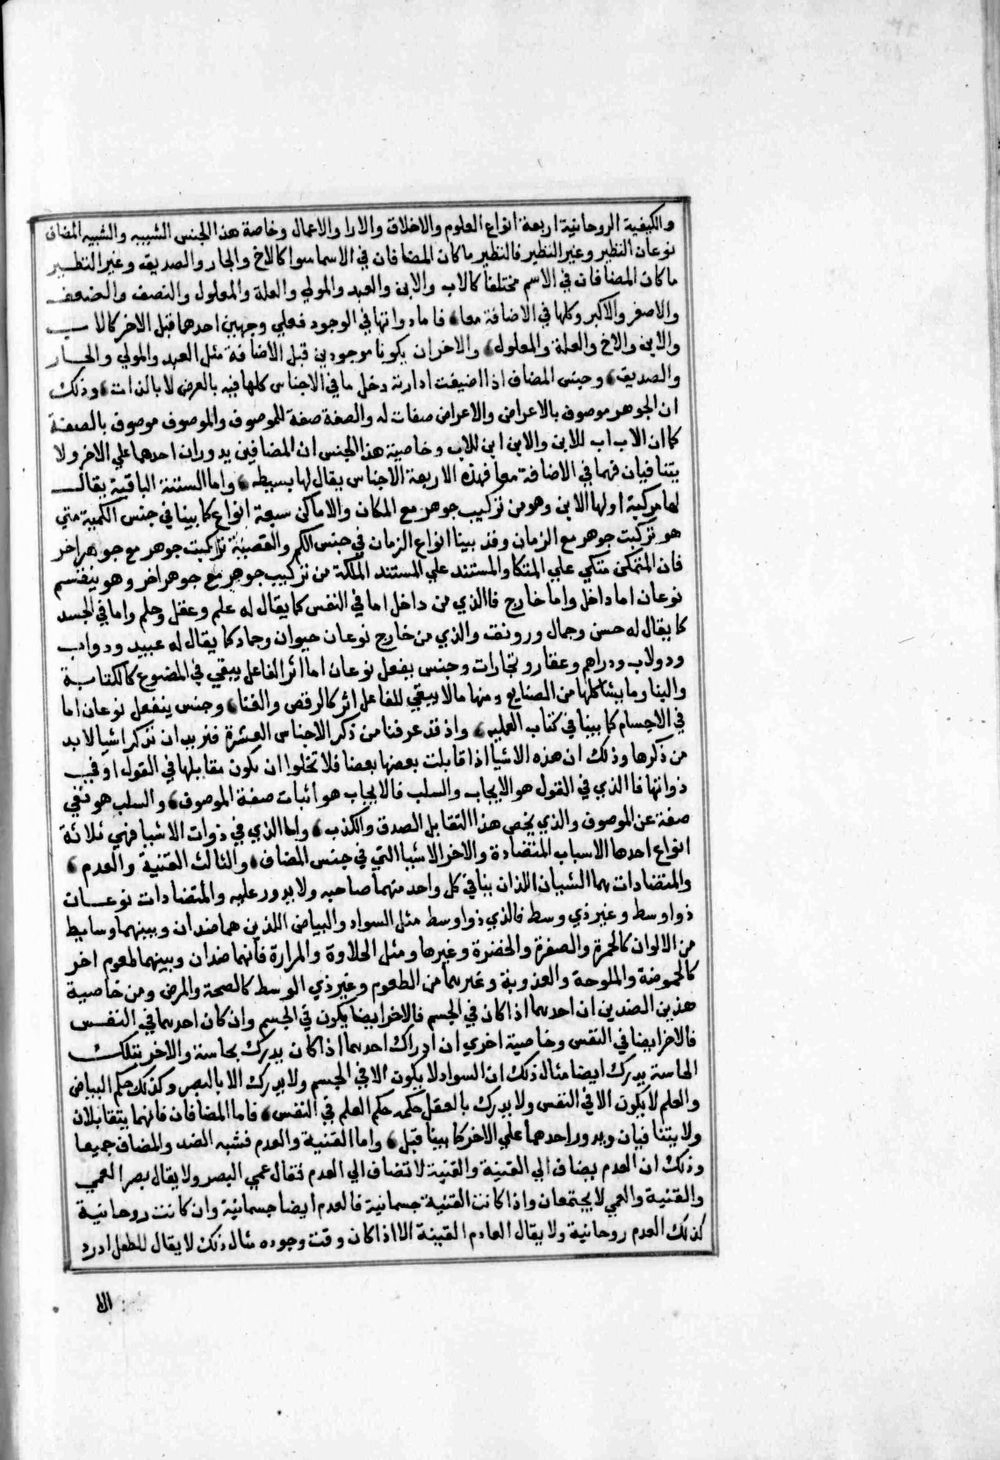 والكيفية الروحانية اربعة انواع العلوم والاخلاق والارا والاعمال وخاصة هذا الجنس الشبيه والشبيه المضاف
نوعان النظير وغير النظير فالنظير ما كان المضافان في الاسما سوا كالاخ والجار والصديق وغير النظير
ما كان المضافان في الاسم مختلفا كالاب والابن والعبد والمولي والعلة والمعلول والنصف والضعف
والاصغر والاكبر وكلها في الاضافة معا فاما ذواتها في الوجود فعلي وجهين احدهما قبل الاخر كالاب
والابن والاخ والعلة والمعلول والاخران يكونا موجودين قبل الاضافة مثل العبد والمولي والجار
والصديق وجنس المضاف اذا اضيفت ادارته دخل ما في الاجناس كلها فيه بالعرض لا بالذات وذلك
ان الجوهر موصوف بالاعراض والاعراض صفات له والصفة صفة للموصوف والموصوف موصوف بالصفة
كما ان الاب اب للابن والابن ابن للاب وخاصية هذا الجنس ان المضافين يدوران احدهما علي الاخر ولا
يتنافيان فهما في الاضافة معا فهذه الاربعة الاجناس يقال لها بسيطه واما الستة الباقية يقال
لها مركبة اولها الاين وهو من تركيب جوهر مع المكان والاماكن سبعة انواع كما بينا في جنس الكمية متي
هو تركيب جوهر مع الزمان وقد بينا انواع الزمان في جنس الكم والقصبة تركيب جوهر مع جوهر اخر
فان المتمكن متكي علي المتكا والمستند علي المستند الملكة من تركيب جوهر مع جوهر اخر وهو ينقسم
نوعان اما داخل واما خارج فالذي من داخل اما في النفس كما يقال له علم وعقل وحلم واما في الجسد
كما يقال له حسن وجمال ورونق والذي من خارج نوعان حيوان وجماد كما يقال له عبيد ودواب
ودولاب ودراهم وعقار وتجارات وجنس يفعل نوعان اما اثر الفاعل يبقي في المصنوع كالكتابة
والبنا وما يشاكلها من الصنايع ومنها ما لا يبقي للفاعل اثر كالرقص والغنا وجنس ينفعل نوعان اما
في الاجسام كما بينا في كتاب العمليه واذ قد عرفنا من ذكر الاجناس العشرة فنريد ان نذكر اشيا لا بد
من ذكرها وذلك ان هذه الاشيا اذا قابلت بعضها بعضا فلا تخلوا ان يكون مقابلها في القول او في
ذواتها فالذي في القول هو الايجاب والسلب فالايجاب هو اثبات صفة الموصوف والسلب هو نفي
صفة عن الموصوف والذي يخص هذا التقابل الصدق والكذب واما الذي في ذوات الاشيا فهي ثلاثة
انواع احدها الاسباب المتضادة والاخر الاشيا التي في جنس المضاف والثالث القنية والعدم
والمتضادات هما الشيان اللذان ينافي كل واحد منهما صاحبه ولا يدور عليه والمتضادات نوعان
ذو اوسط وغير ذي وسط فالذي ذو اوسط مثل السواد والبياض اللذين هما ضدان وبينهما وسايط
من الالوان كالحمرة والصفرة والخضرة وغيرها ومثل الحلاوة والمرارة فانهما ضدان وبينهما طعوم اخر
كالحموضة والملوحة والعذوبة وغيرهما من الطعوم وغير ذي الوسط كالصحة والمرض ومن خاصية
هذين الضدين ان احدهما اذا كان في الجسم فالاخر ايضا يكون في الجسم وان كان احدهما في النفس
فالاخر ايضا في النفس وخاصية اخري ان ادراك احدهما اذا كان يدرك بحاسة والاخر بتلك
الحاسة يدرك ايضا مثال ذلك ان السواد لا يكون الا في الجسم ولا يدرك الا بالبصر وكذلك حكم البياض
والعلم لا يكون الا في النفس ولا يدرك بالعقل حكمه حكم العلم في النفس فاما المضافان فانهما يتقابلان
ولا يتنافيان ويدور احدهما علي الاخر كما بينا قبل واما القنية والعدم فشبه الضد والمضاف جميعا
وذلك ان العدم يضاف الي القنية والقنية لا تضاف الي العدم فتقال عمي البصر ولا يقال بصر العمي
والقنية والعمي لا يجتمعان واذا كانت القنية جسمانية فالعدم ايضا جسمانية وان كانت روحانية
كذلك العدم روحانية ولا يقال العادم القنية الا اذا كان وقت وجوده مثال ذلك لا يقال للطفل ادرد
الا